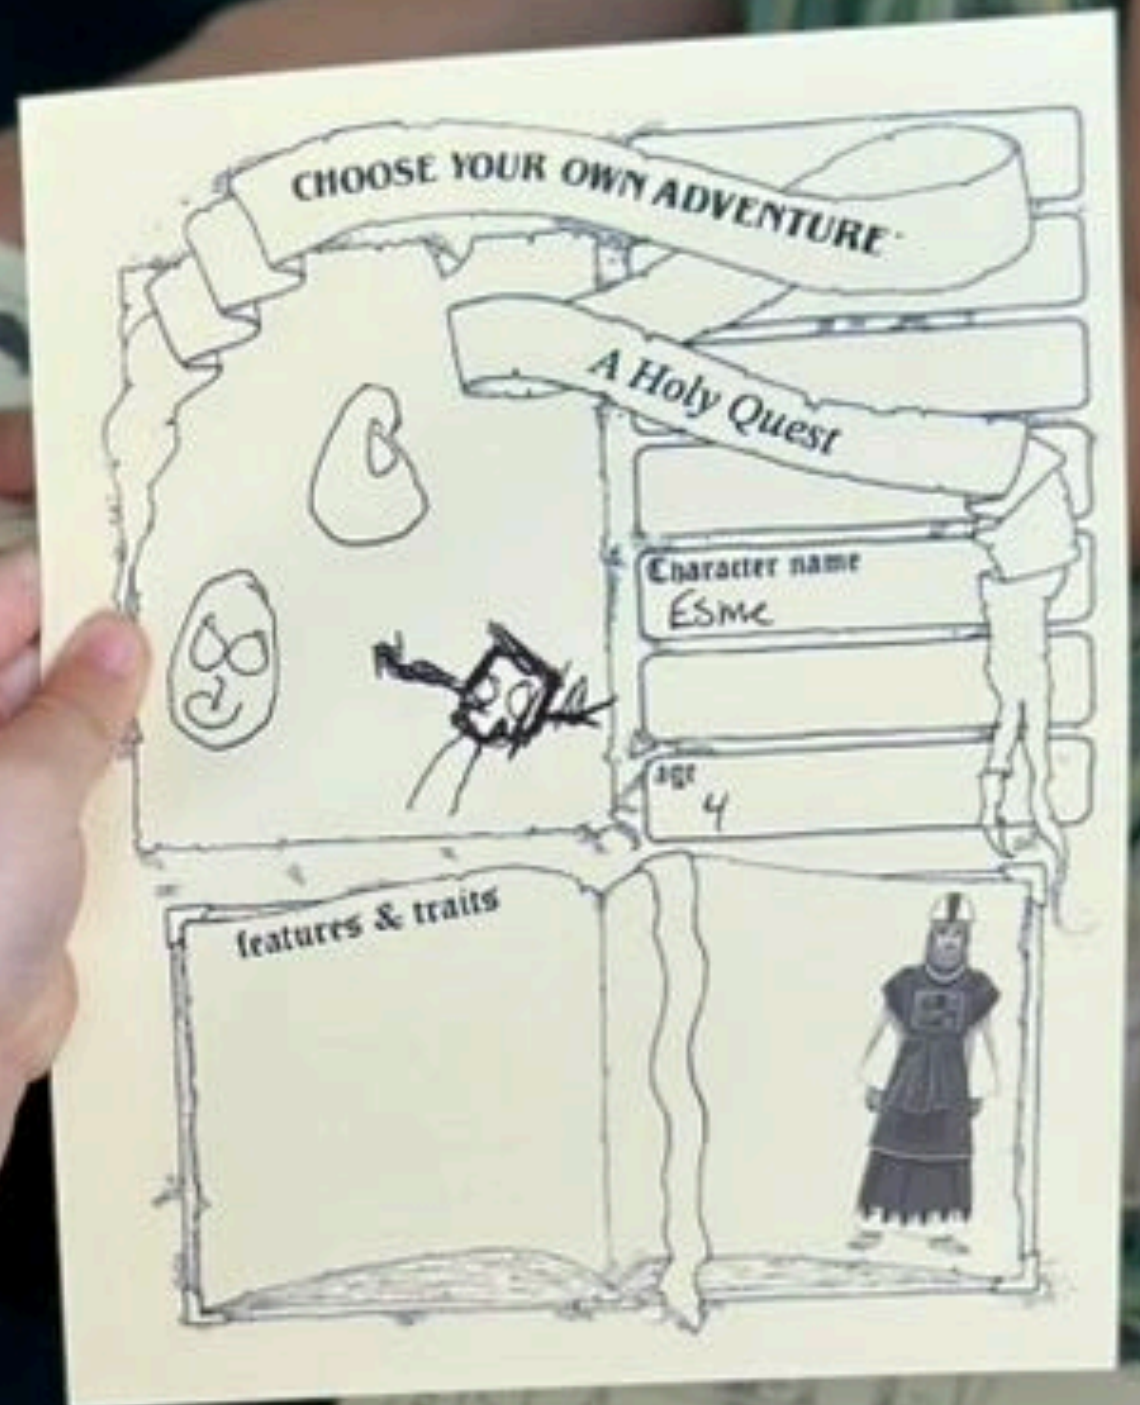 CHOOSE YOUR OWN ADVENTURE
A Holy Quest
Character name
Esme
age
4
features & traits